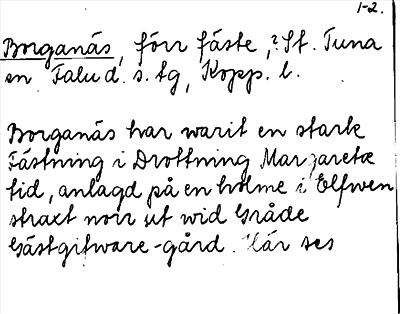 1-2.
Borganäs, förr fäste, ? St. Tuna
sn Falu d. s. tg, Kopp. l.
Borganäs har warit en stark
Fästning i Drottning Margaretæ
tid, anlagd på en holme i Elfwen
straxt norr ut wid Gråde
Gästgifware-gård. Här ses